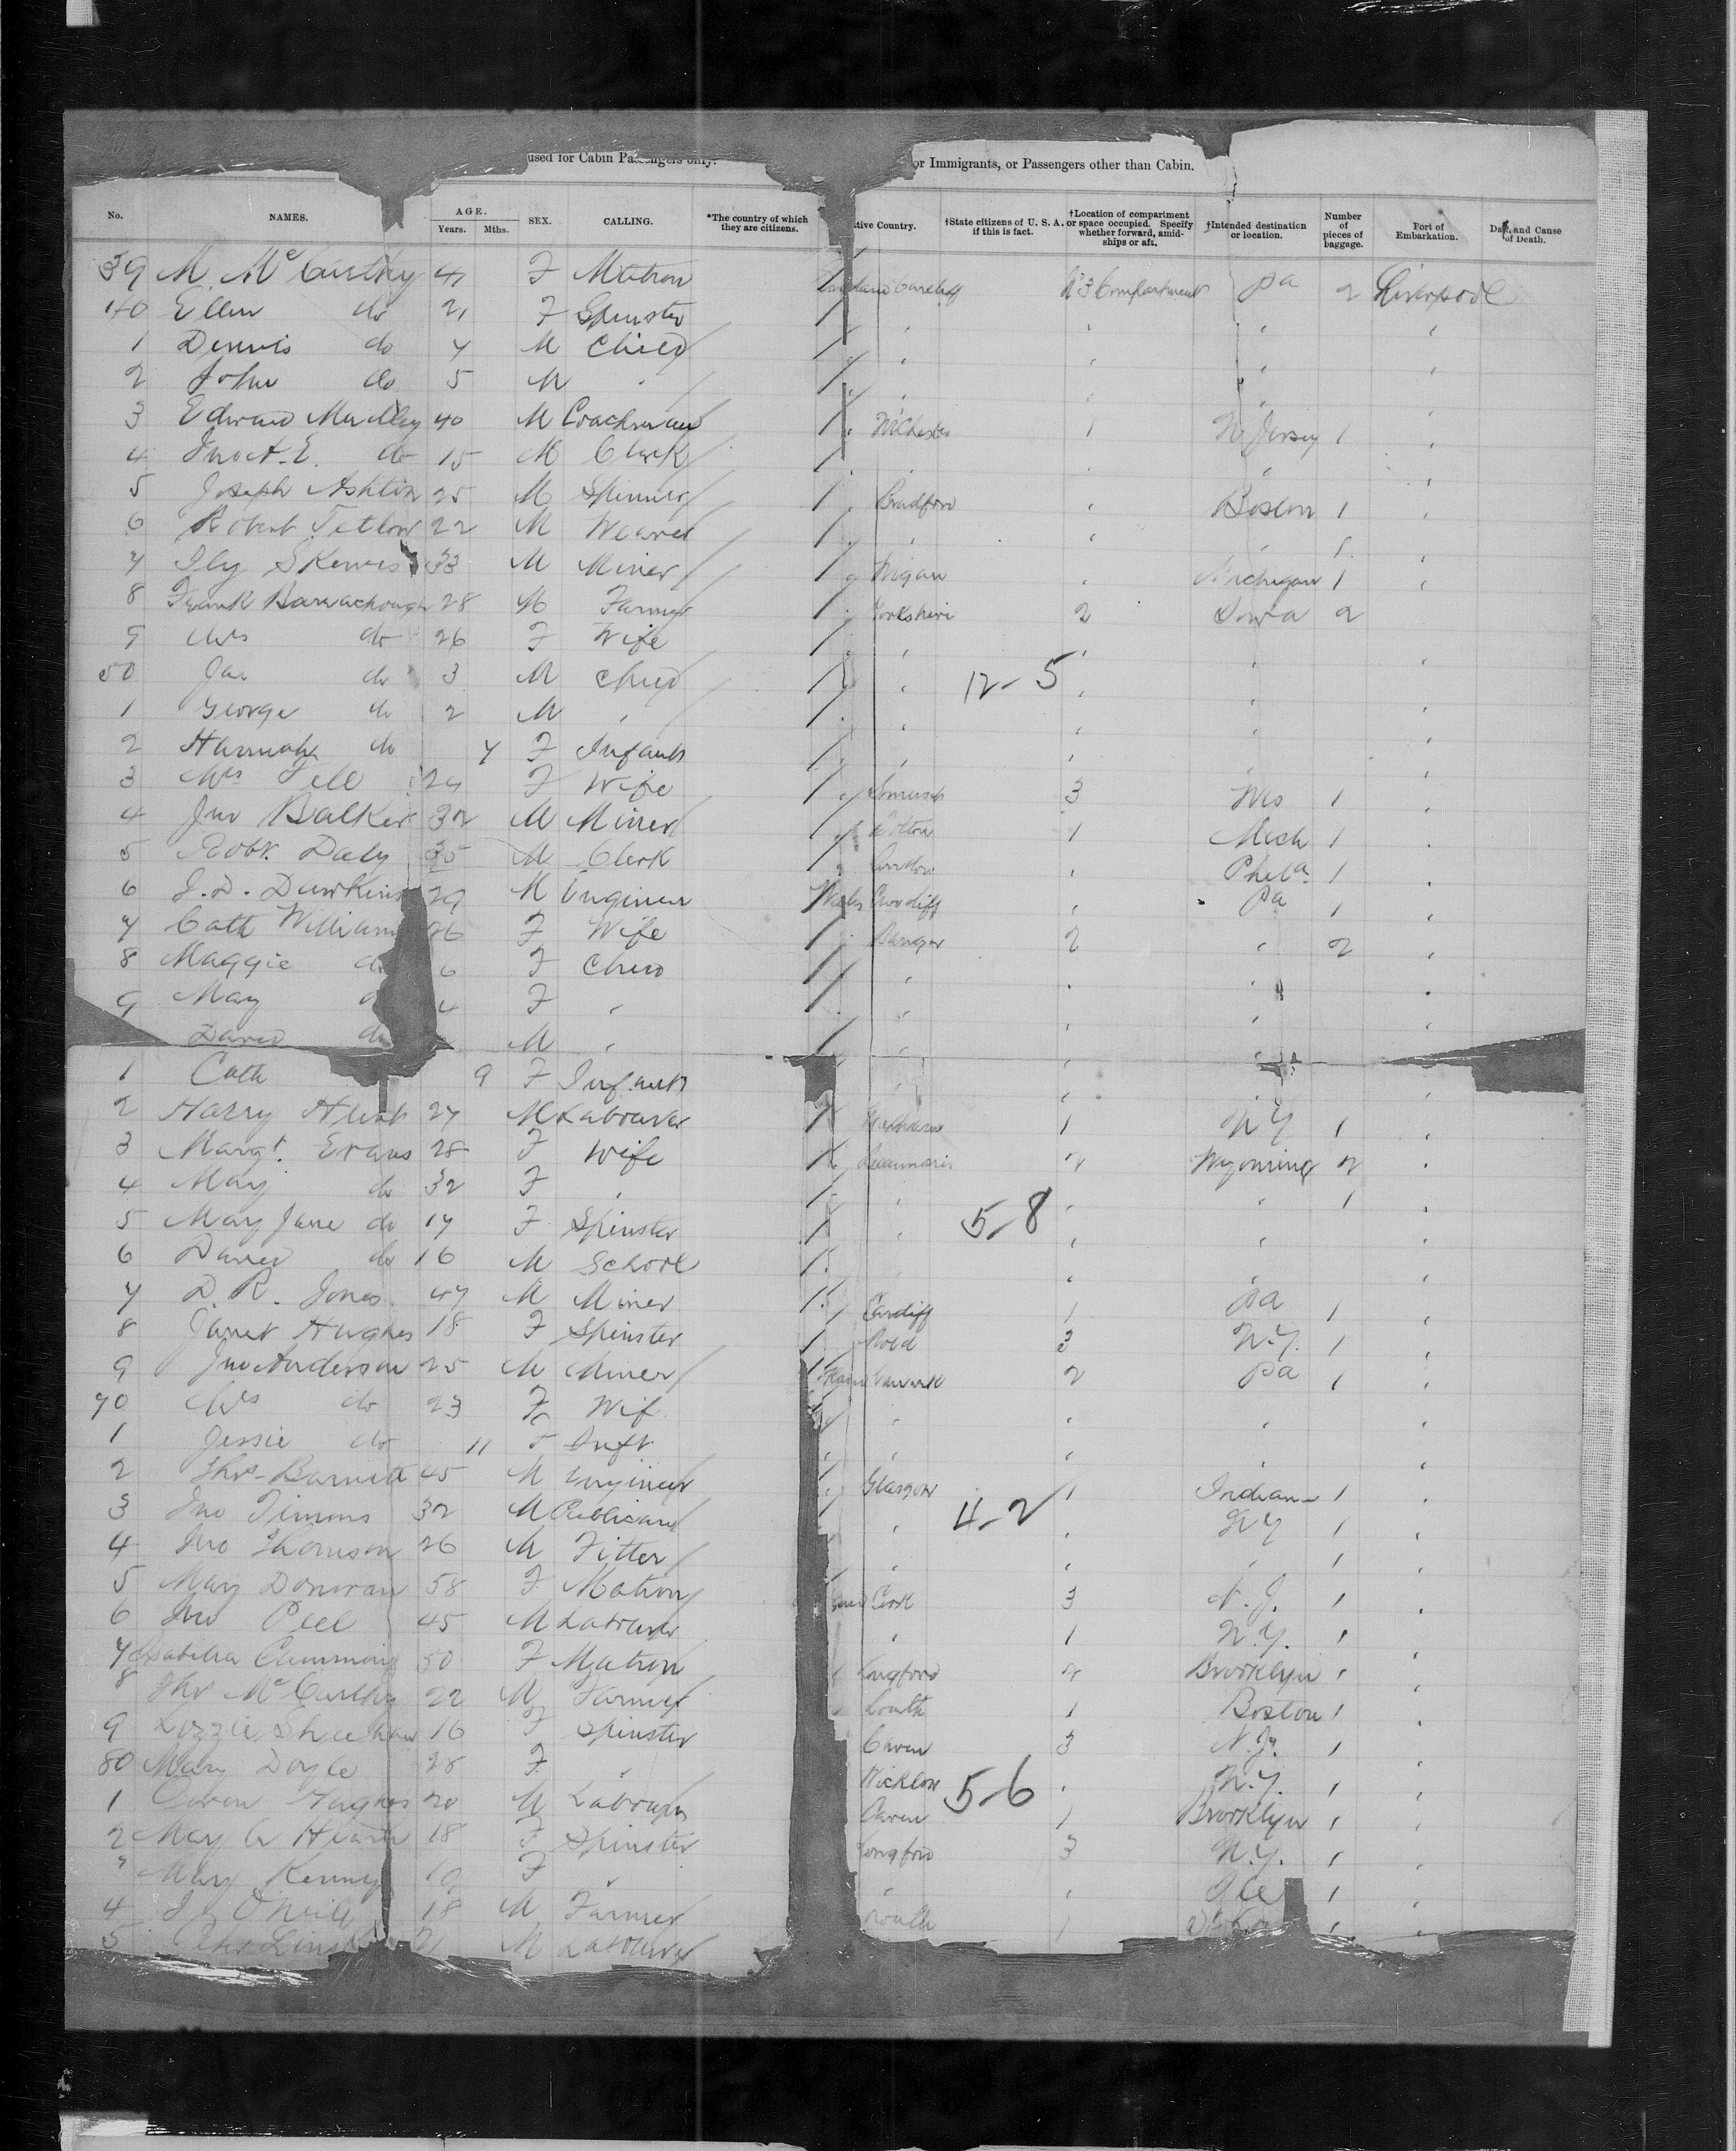 used for Cabin Passengers only.
or Immigrants, or Passengers other than Cabin.
No. NAMES. AGE. Years. Mths. SEX. CALLING. *The country of which they are citizens. tive Country. †State citizens of U. S. A. if this is fact. †Location of compartment or space occupied. Specify whether forward, amidships or aft. †Intended destination or location. Number of pieces of baggage. Port of Embarkation. Date and Cause of Death.
39 M. McCarthy F Matron Cardiff No 3 Compartment Pa 2 Liverpool
40 Ellen do 21 F Spinster
1 Dennis do 7 M Child
2 John do 5 M "
3 Edward 40 M Coachman 1 N. Jersey 1
4 do 15 M Clerk
5 Joseph Ashton 25 M Spinner Bradford Boston 1
6 Robert Tetlow 22 M Weaver
7 Skewis 33 M Miner Wigan Michigan 1
8 Frank Barrachough 28 M Farmer Yorkshire 2 Iowa 2
9 Mrs do 26 F Wife
50 Jas do 3 M Child 12-5
1 George do 2 M "
2 Hannah do 7 F Infant
3 Mrs 24 F Wife Somerset 3 Wis 1
4 Jno Balker 32 M Miner 1 Mich 1
5 Robt. Daly 35 M Clerk London Phila 1
6 J. D. Dawkins 29 M Engineer Wales Cardiff Pa 1
7 Cath Williams 26 F Wife Bangor 2 " 2
8 Maggie do 6 F Child
9 May 4 F "
David do M "
1 Cath 9 F Infant
2 Harry 27 M Labourer 1 N Y 1
3 Margt. Evans 28 F Wife Beaumaris 2 Wyoming 2
4 May do 32 F " 1
5 May Jane do 17 F Spinster 5-8
6 David do 16 M School
7 D. R. Jones 47 M Miner Cardiff 1 Pa 1
8 Janet Hughes 18 F Spinster Mold 3 N.Y. 1
9 Jno Anderson 25 M Miner 2 Pa 1
70 Mrs do 23 F Wif
1 Jessie do 11 F Inft
2 Thos Barnett 45 M Engineer Glasgow 1 Indiana 1
3 Jno Timons 32 M Publican 4-2 N Y 1
4 Jno Thomson 26 M Fitter 1
5 May Donovan 58 F Matron Cork 3 N. J. 1
6 Jno Peel 45 M Labourer 1 N.Y. 1
7 Isabella 50 F Matron Longford 2 Brooklyn 1
8 Thos McCarthy 22 M Farmer Louth 1 Boston 1
9 Lizzie Sheehan 16 F Spinster Cavan 3 N.J. 1
80 Mary Doyle 28 F " Wicklow 5-6 N.Y. 1
1 Owen Hughes 20 M Labourer Cavan 1 Brooklyn 1
2 May A 18 F Spinster Longford 3 N.Y. 1
Mary Kenny 19 F " 1
4 O'Neill 18 M Farmer Louth 1
5 M Labourer